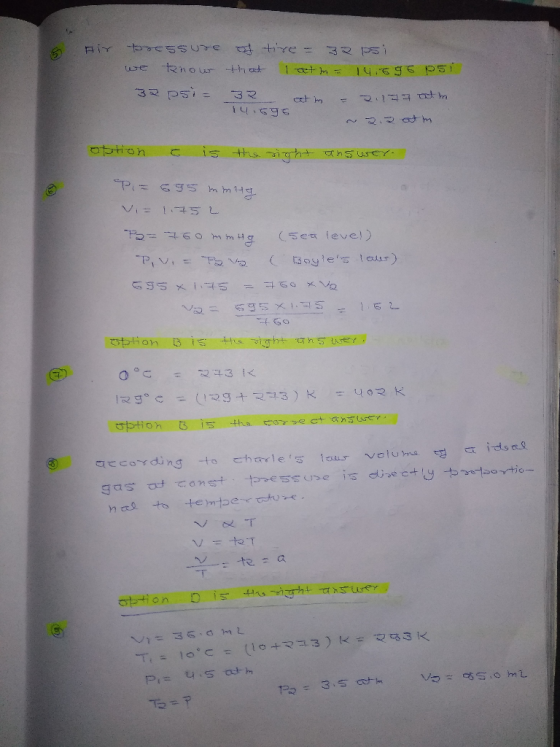 5) Air pressure of tire = 32 psi
we know that 1 atm = 14.696 psi
32 psi = 32/14.696 atm = 2.177 atm
~ 2.2 atm
option C is the right answer.
6) P1 = 695 mmHg
V1 = 1.75 L
P2 = 760 mmHg (sea level)
P1V1 = P2V2 (Boyle's law)
695 × 1.75 = 760 × V2
V2 = 695 × 1.75/760 = 1.6 L
option B is the right answer.
7) 0°C = 273 K
129°C = (129 + 273) K = 402 K
option B is the correct answer.
8) according to charle's law volume of a ideal
gas at const. pressure is directly proportio-
nal to temperature.
V ∝ T
V = kT
V/T = k = a
option D is the right answer.
9) V1 = 35.0 mL
T1 = 10°C = (10 + 273) K = 283 K
P1 = 4.5 atm
T2 = ? P2 = 3.5 atm V2 = 85.0 mL